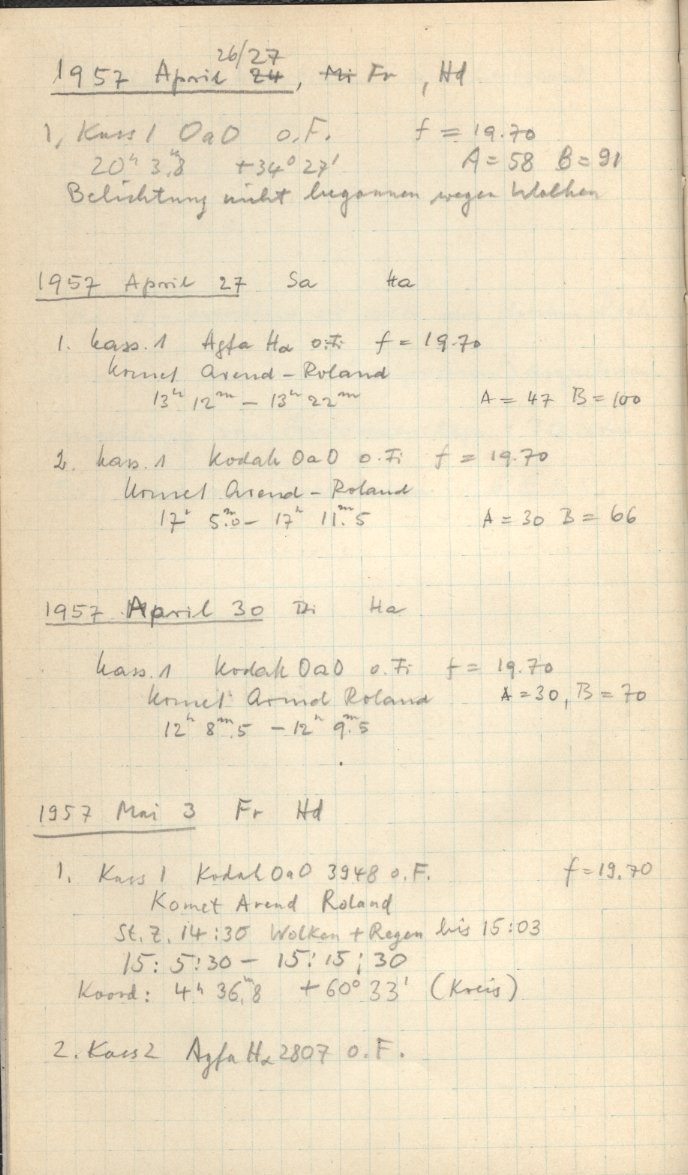 26/27
1957 April 24, Mi Fr, Hd
1, Kass 1 OaO o.F. f = 19.70
20h 3m,8 +34° 27' A=58 B=91
Belichtung nicht begonnen wegen Wolken
1957 April 27 Sa Ha
1. Kass. 1 Agfa Hα o.Fi f = 19.70
Komet Arend-Roland
13h 12m – 13h 22m A = 47 B = 100
2. Kass. 1 Kodak OaO o.Fi f = 19.70
Komet Arend-Roland
17h 5m.0 – 17h 11m.5 A = 30 B = 66
1957 April 30 Di Ha
Kass. 1 Kodak OaO o.Fi f = 19.70
Komet Arend Roland A = 30, B = 70
12h 8m.5 – 12h 9m.5
1957 Mai 3 Fr Hd
1. Kass 1 Kodak OaO 3948 o.F. f=19.70
Komet Arend Roland
St.Z. 14:30 Wolken + Regen bis 15:03
15:5:30 – 15:15:30
Koord: 4h 36m,8 +60° 33' (Kreis)
2. Kass 2 Agfa Hα 2807 o.F.